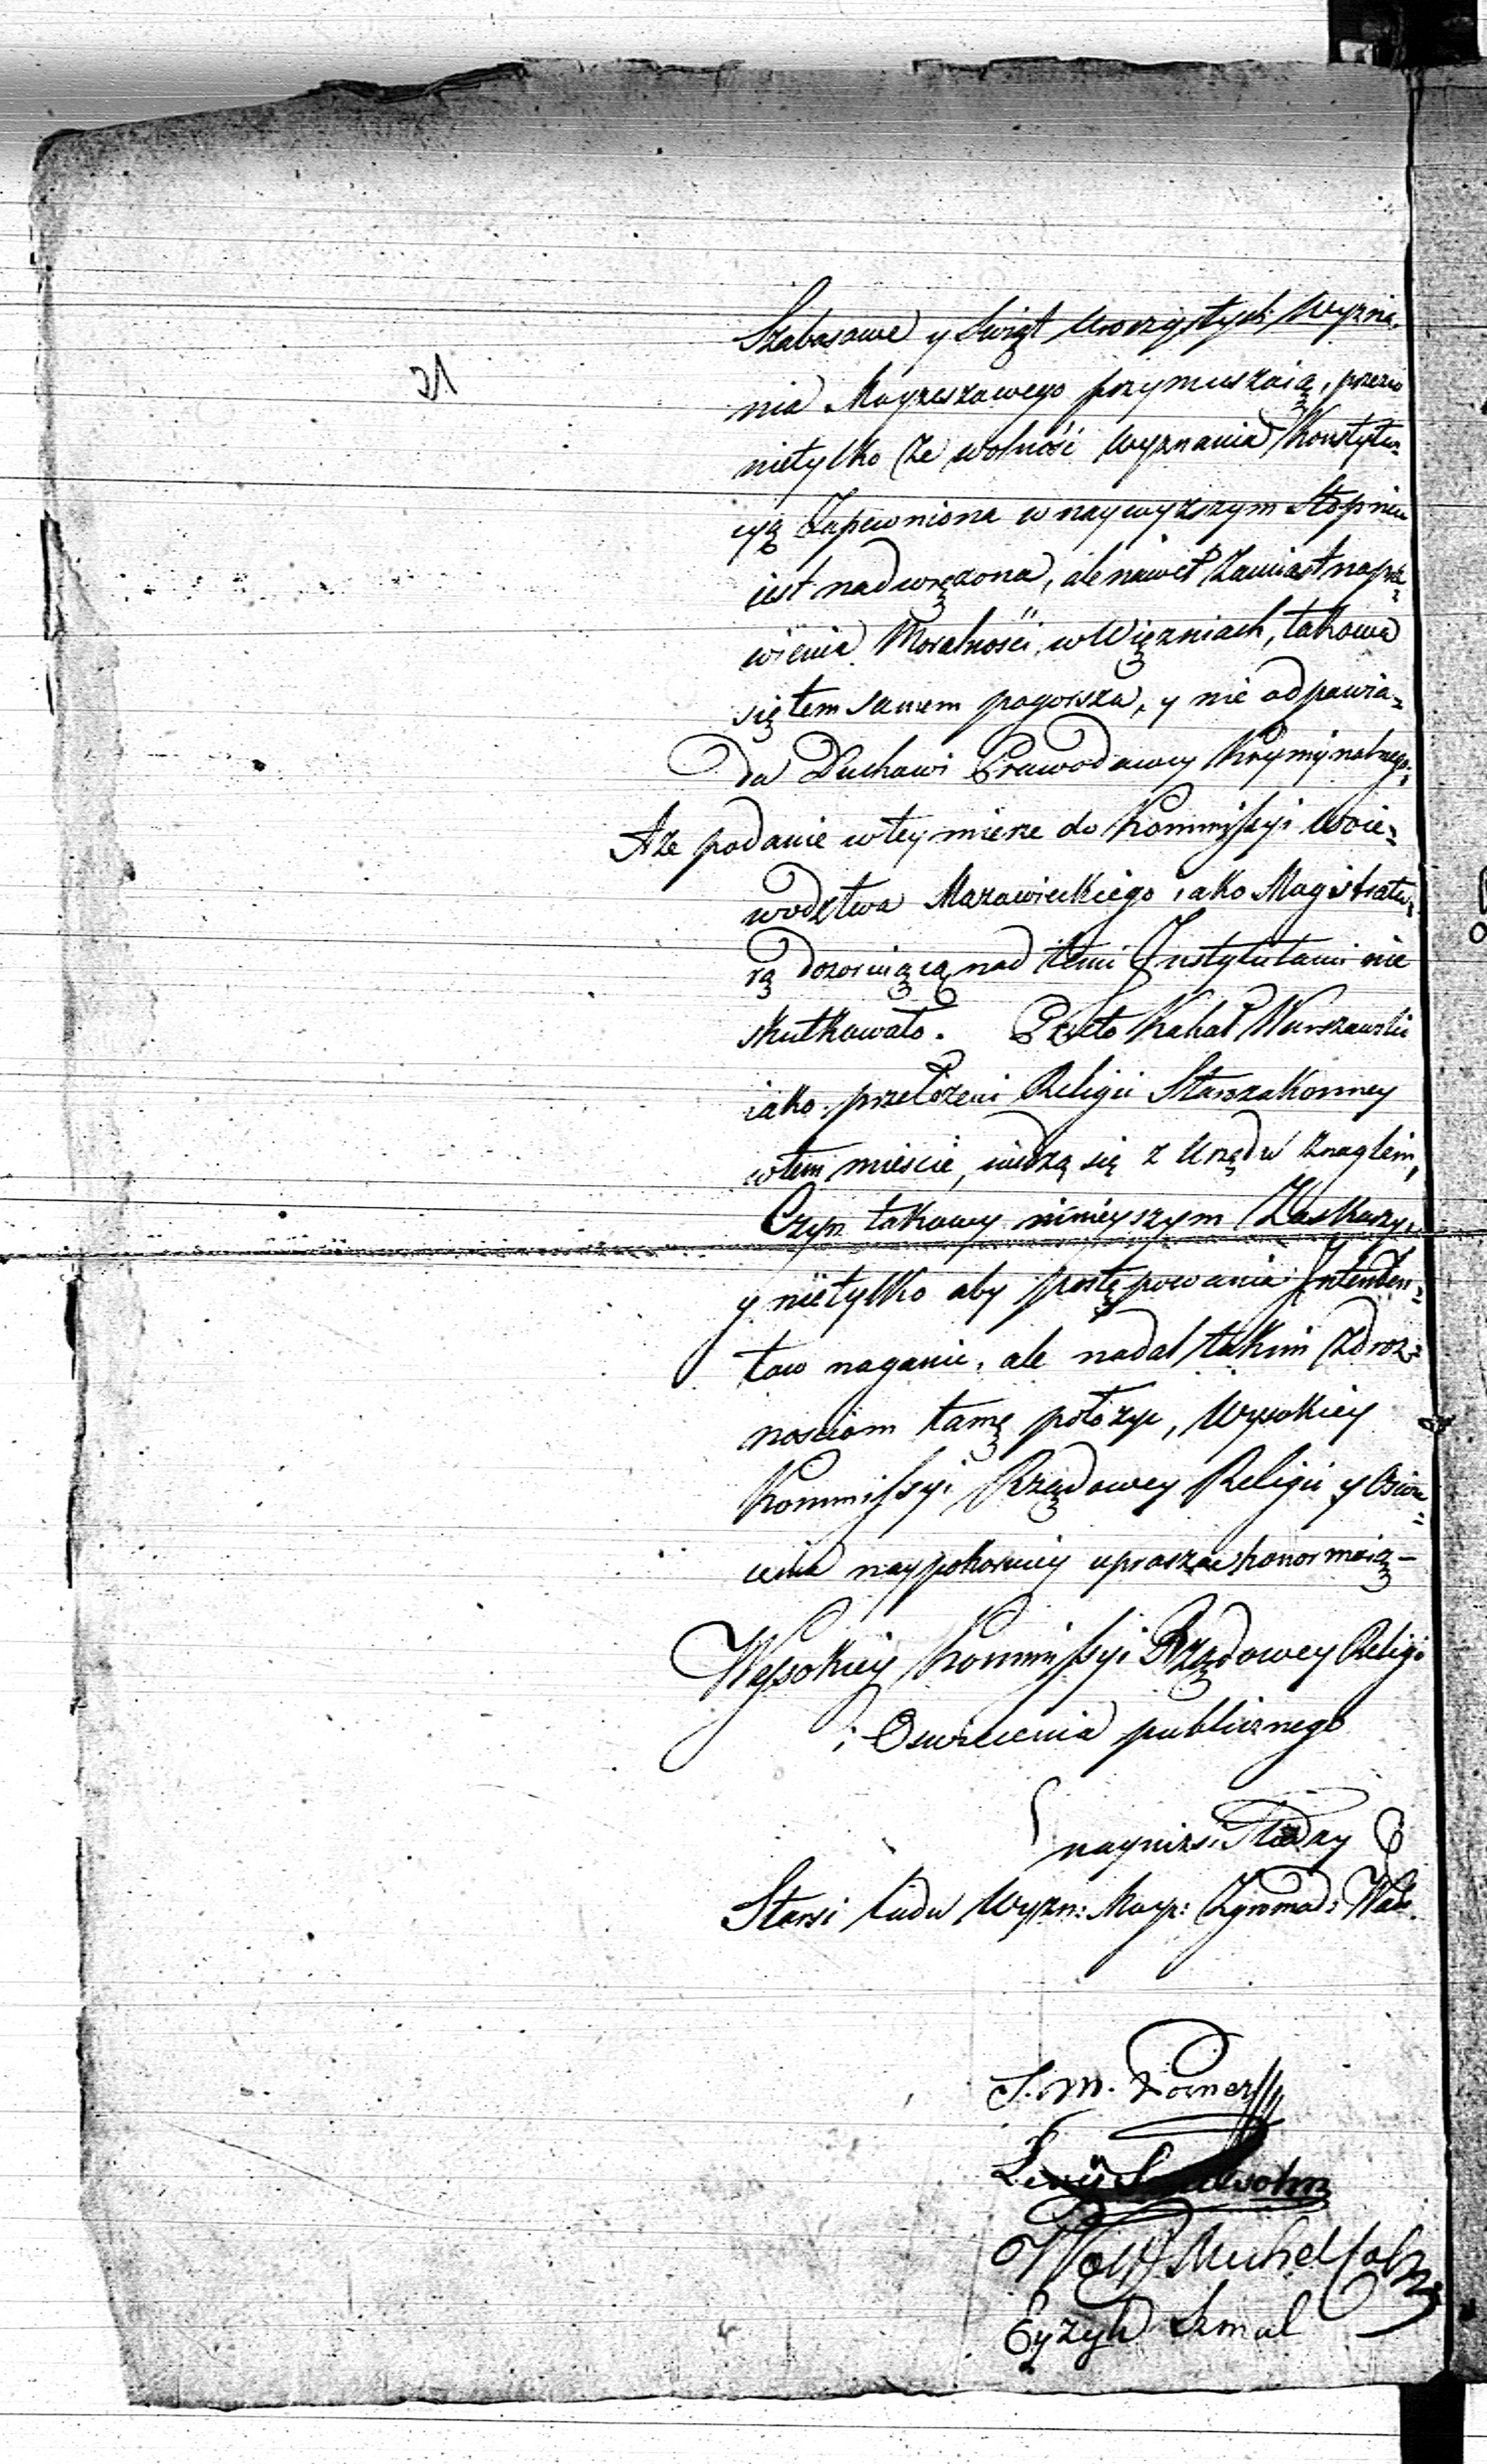 21
Szabasowe y Swiąt Uroczystych Wyzna,
nia Moyzeszowego przymuszaią, przez co
nietylko Ze wolność Wyznania Konstytu=
cyą Zapewniona w naywyzszym Stopniu
iest nadwręzona, ale nawet Zamiast napra=
wienia Moralności, w Więzniach, takowa
się tem samem pogorsza, y nie odpowia=
da Duchowi Prawodawcy Kryminalnego;
A ze podanie w tey mierze do Kommissyi Woie=
wodztwa Mazowieckiego iako Magistratu=
rą dozoruiącą nad temi Instytutami nie
skutkowało. Przeto Kahał Warszawski
iako przełozeni Religii Starozakonney
w tem mieście, widzą się z Urzędu znaglem,
Czyn takowy ninieyszym Zaskarzyć,
y nietylko aby postępowania Intenden=
tow naganić, ale nadal takim Zdroz=
nosciom tamę połozyć, Wysokiey
Kommissyi Rządowey Religii y Oświe=
cenia naypokorniey upraszac honor maią –
Wysokiey Kommissyi Rządowey Religii
i Oswiecenia publicznego
naynizsi Słudzy
Starsi Ludu Wyzn: Moyz: Zgromad: Wars.
S. M. Posner
Levÿ
Wolff Michelsohn
Eyzyk Szmul